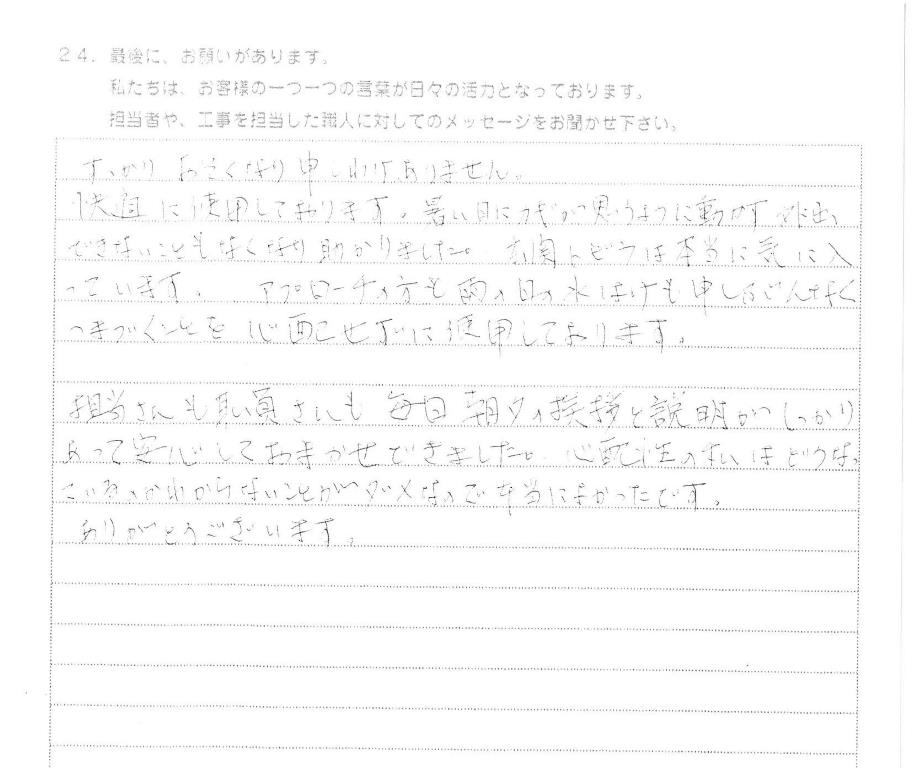 24．最後に、お願いがあります。
私たちは、お客様の一つ一つの言葉が日々の活力となっております。
担当者や、工事を担当した職人に対してのメッセージをお聞かせ下さい。
すっかり おそくなり 申しわけありません。
快適に使用しております。暑い日にカギが思うように動かず 外出
できないこともなくなり助かりました。玄関ドアは本当に気に入
っています。 アプローチの方も雨の日の水はけも申しぶんなく
つまづくことを心配せずに使用しております。
担当さんも職員さんも 毎日 朝夕の挨拶と説明がしっかり
あって安心しておまかせできました。心配性の私はどうなっ
ているのかわからないことがダメなので本当によかったです。
ありがとうございます。